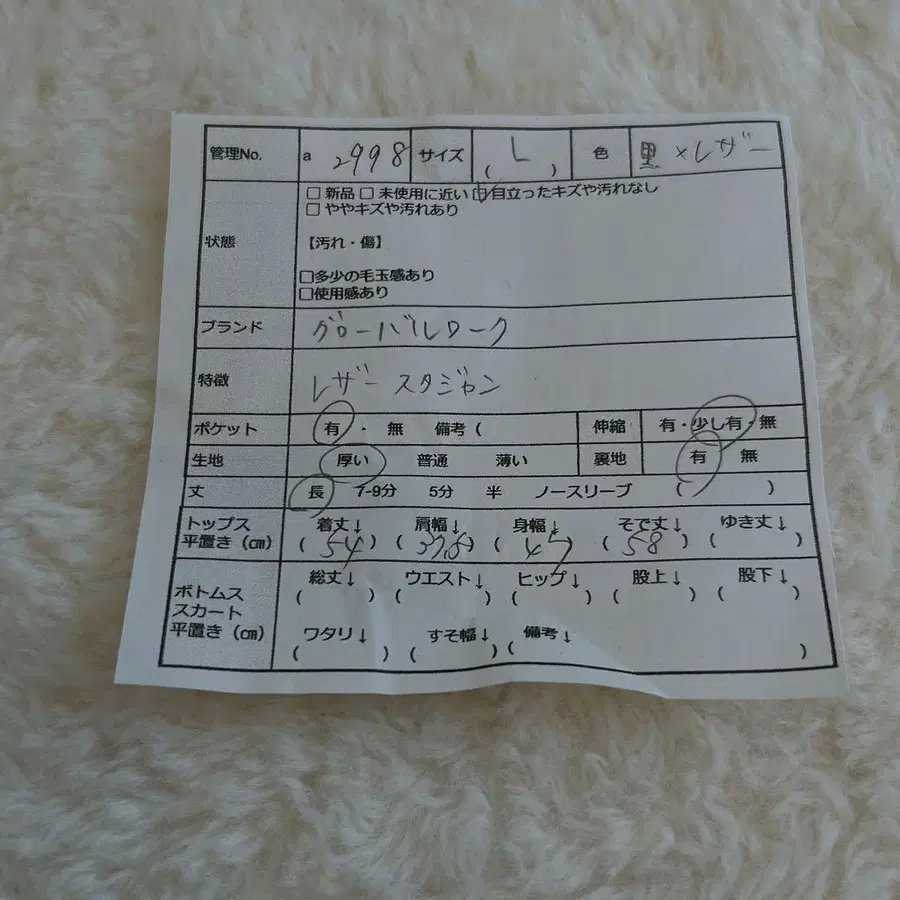 管理No. a 2998 サイズ ( L ) 色 黒×レザー
□ 新品 □ 未使用に近い □ 目立ったキズや汚れなし
□ ややキズや汚れあり
状態 【汚れ・傷】
□多少の毛玉感あり
□使用感あり
ブランド グローバルワーク
特徴 レザースタジャン
ポケット 有 ・ 無 備考 ( 伸縮 有・少し有・無
生地 厚い 普通 薄い 裏地 有 無
丈 長 7-9分 5分 半 ノースリーブ ( )
トップス 着丈↓ 肩幅↓ 身幅↓ そで丈↓ ゆき丈↓
平置き (㎝) ( 54 ) ( 37.5 ) ( 47 ) ( 58 ) ( )
ボトムス 総丈↓ ウエスト↓ ヒップ↓ 股上↓ 股下↓
スカート ( ) ( ) ( ) ( ) ( )
平置き (㎝) ワタリ↓ すそ幅↓ 備考↓
( ) ( ) ( )